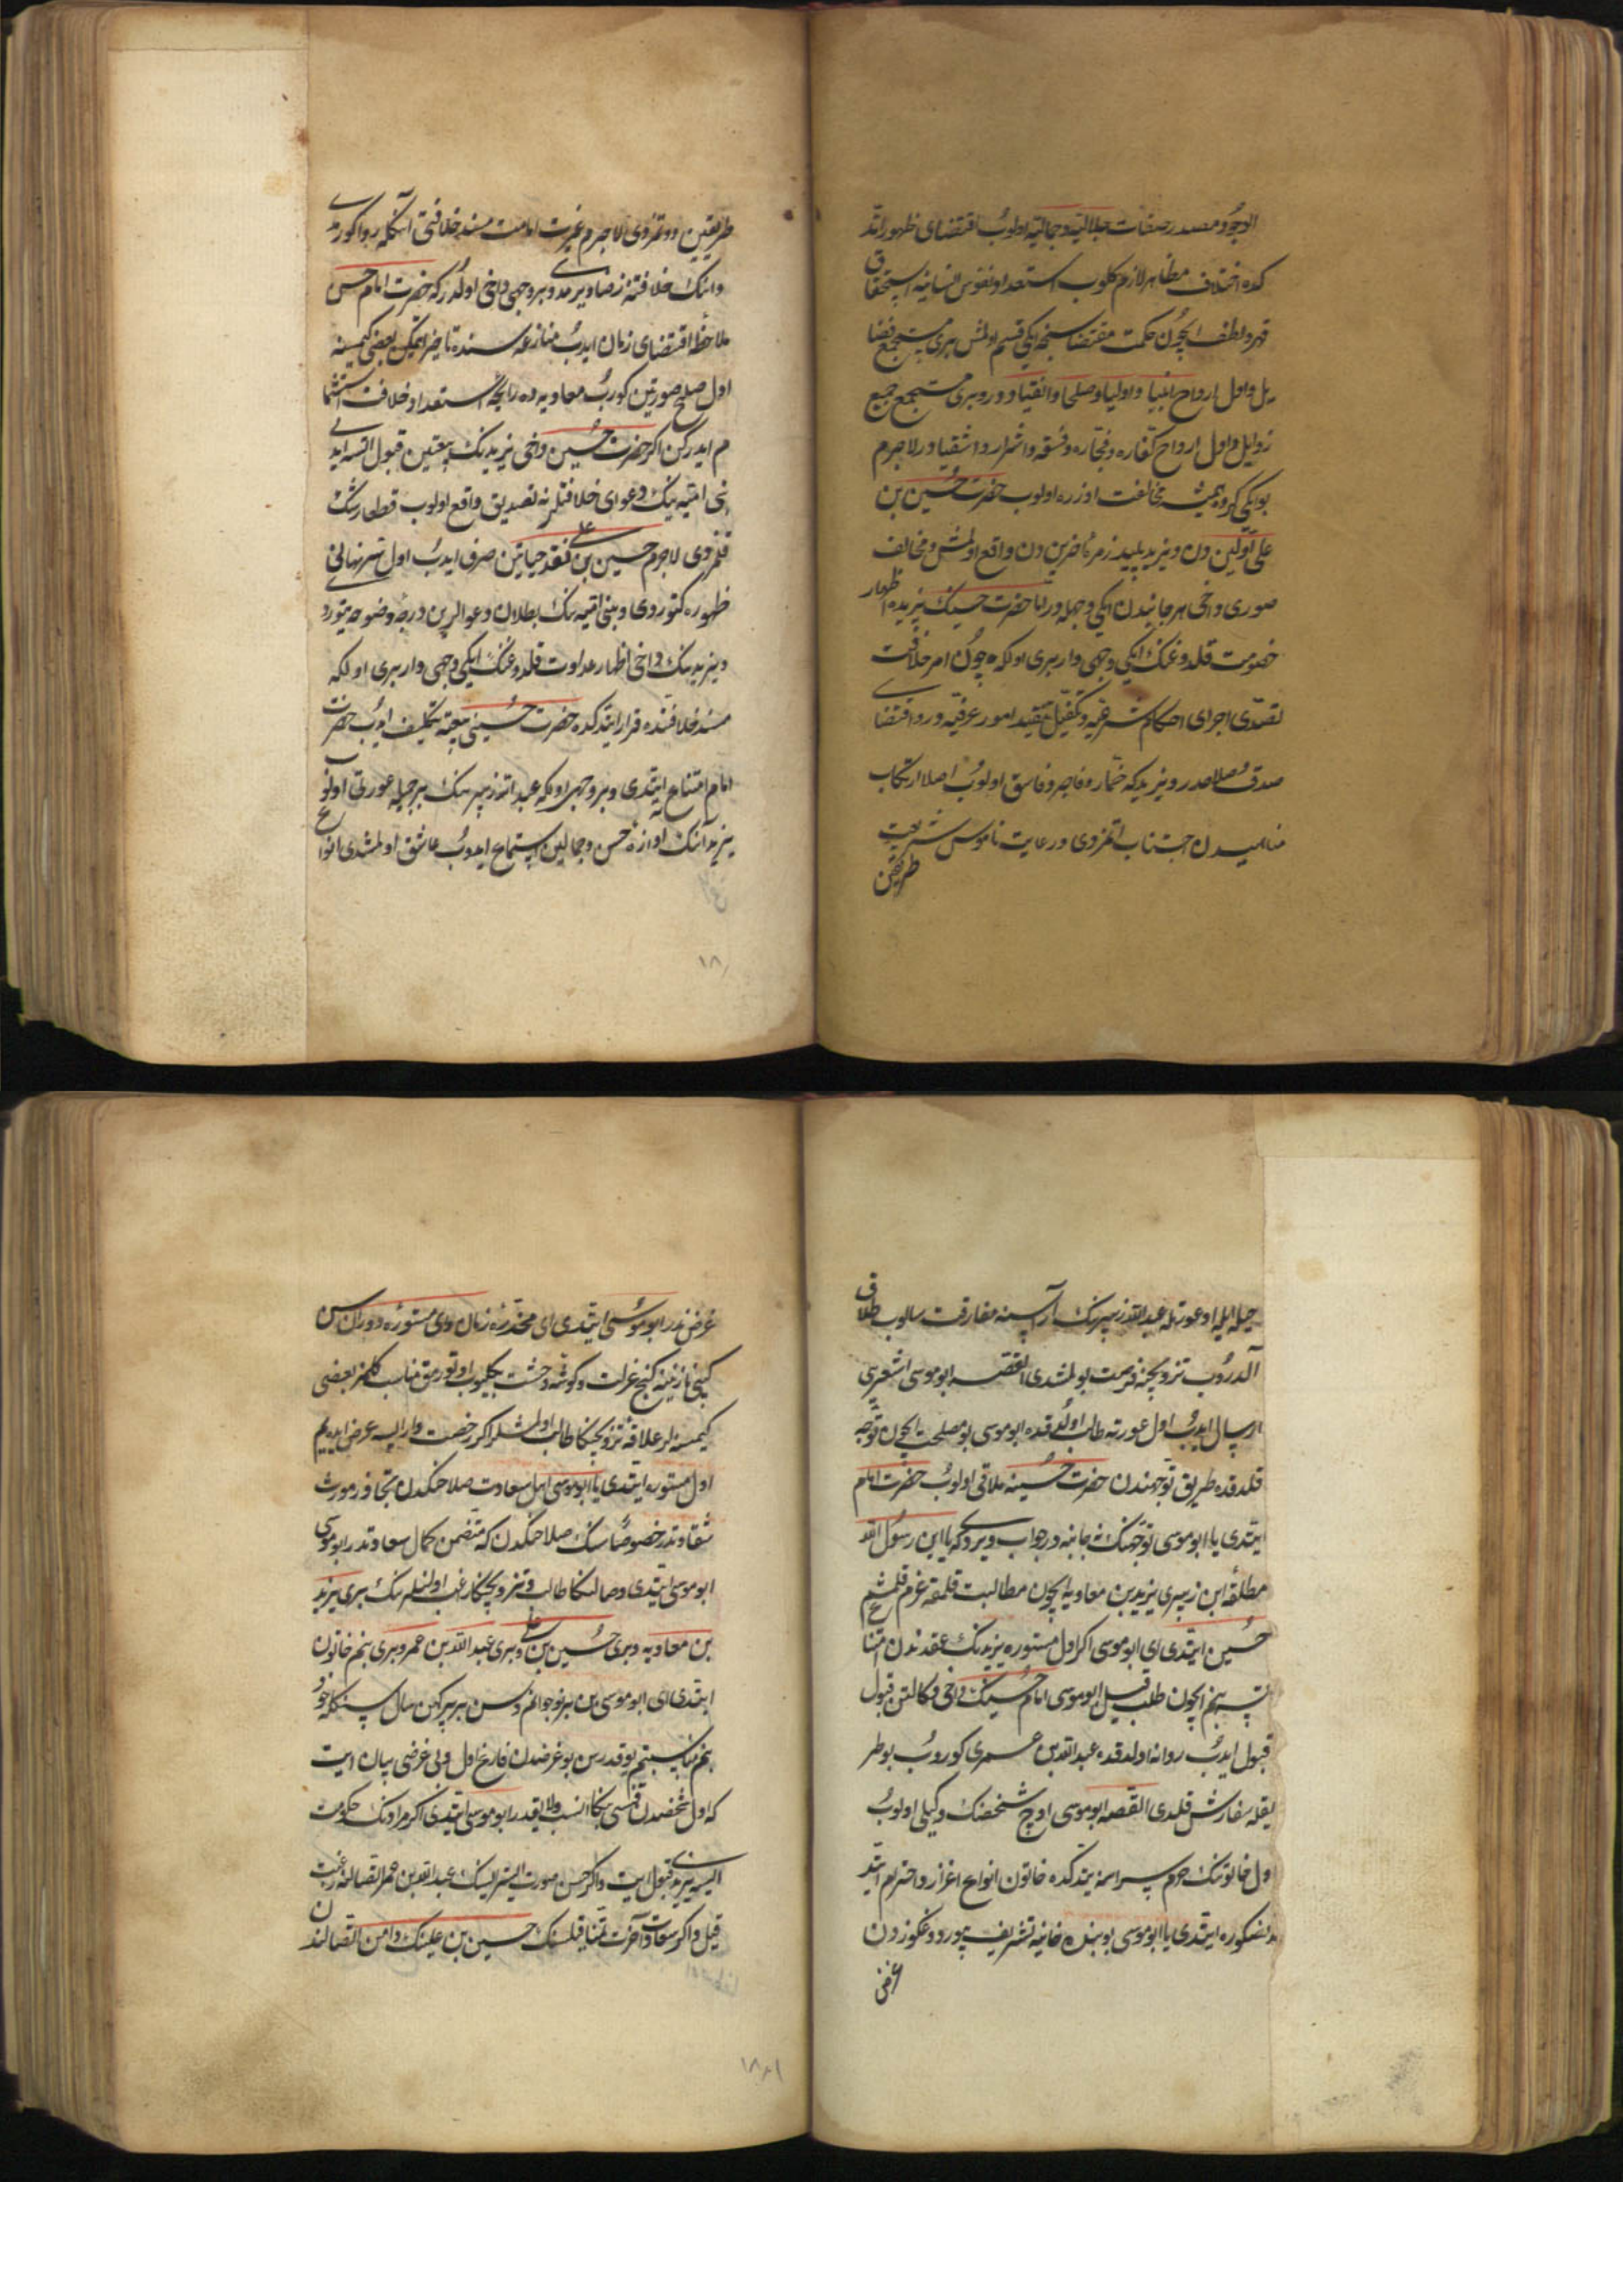 الوجود و مصدر صفات جلالیه و جمالیه اولوب اقتضای ظهور ایتد
کده اختلاف مظاهر لازم کلوب استعداد نفوس انسانیه استحقاق
قهر و لطف ایچون حکمت مقتضاسنجه ایکی قسم اولمش بری مستجمع فضا
یل و اول ارواح انبیا و اولیا و صلحا و اتقیا دور و بری مستجمع جمیع
رذایل و اول ارواح کفاره و فجاره و فسقه و اشرار و اشقیا در لاجرم
بو ایکی کروه همیشه مخالفت اوزره اولوب حضرت حسین بن
علی اولین دن و یزید پلید زمره آخرین دن واقع اولمش و مخالف
صوری داخی هر جانبدن ایکی وجهله در اما حضرت حسینک یزیده اظهار
خصومت قلدوغنک ایکی وجهی وار بری اولکه چون امر خلافت
تصدی اجرای احکام شرعیه و تکفیل تقید امور عرفیه در و اقتضای
صدق صلاحدر و یزید که خمار و فاجر و فاسق اولوب اصلا ارتکاب
مناهیدن اجتناب اتمزدی و رعایت ناموس شریعت
طریقین
طریقین دوتمزدی لاجرم غیرت امامت مسند خلافتی آنکله روا کورمدی
و انک خلافتنه رضا ویرمدی و بر وجهی داخی اولدر که حضرت امام حسن
ملاحظه اقتضای زمان ایدب منازعه سنده تاخیر ایتمکین بعضی کیمسنه
اول صلح صورتین کورب معاویه ده رایحه استعداد خلافت استشما
م ایدرکن اکر حضرت حسین داخی یزیدنک بیعتین قبول ایتسه ایدی
بنی امیه نک دعوای خلافتلرینه تصدیق واقع اولوب قطعا رشک
قلمزدی لاجرم حسین بن علی نقد حیاتین صرف ایدب اول سر نهانی
ظهوره کتوردی و بنی امیه نک بطلان دعوالرین درجه وضوحه یتوردی
و یزیدنک داخی اظهار عداوت قلدوغنک ایکی وجهی وار بری اولکه
مسند خلافتده قرار ایتدکده حضرت حسینی بیعته تکلیف ایدب حضرت
امام امتناع ایتدی و بر وجهی اولکه عبدالله زبیرنک بر جمیله عورتی اولوب
یزید آنک اوازه حسن و جمالین استماع ایدوب عاشق اولمشدی انواع
حیله ایله او عورتله عبدالله زبیرنک آراسنه مفارقت سالوب طلاق
آلدروب تزویجنه فرصت بولمشدی القصه ابو موسی اشعری
ارسال ایدب اول عورته طالب اولدقده ابو موسی بو مصلحت ایچون توجه
قلدقده طریق توجهندن حضرت حسینه ملاقی اولوب حضرت امام
ایتدی یا ابو موسی توجهنک نه جانبه در جواب ویردی که یا ابن رسول الله
مطلقه ابن زبیری یزید بن معاویه ایچون مطالبت قلمغه عزم قلمشم
حسین ایتدی ای ابو موسی اکر اول مستوره یزیدنک عقدندن امتناع
ایتسه بنم ایچون طلب قیل ابو موسی امام حسینک داخی وکالتن قبول
قبول ایدب روانه اولدقده عبدالله بن عمری کوروب بو طر
یقله سفارش قلدی القصه ابو موسی اوچ شخصک وکیلی اولوب
اول خاتونک حرم سراسنه یتدکده خاتون انواع اعزاز و احترام ایتد
مذکوره ایتدی یا ابو موسی بو بنده خانیه تشریف بیوردوغکوزدن
غرض
غرض ندر ابو موسی ایتدی ای مخدره زمان و ای مستوره دوران سن
کیبی نازنینه کنج عزلت و کوشه وحشت بکلیوب اوتورمق مناسب کلمز بعضی
کیمسنه لر علاقه تزویجکا طالب اولمشلر اکر رخصت وار ایسه عرض ایدیم
اول مستوره ایتدی یا ابو موسی اهل سعادت صلاحکدن تجاوز مورث
شقاوتدر خصوصا سنک صلاحکدن که متضمن کمال سعادتدر ابو موسی
ابو موسی ایتدی وصالکا طالب و تزویجکا راغب اولنلرنک بری یزید
بن معاویه و بری حسین بن علی و بری عبدالله بن عمر و بری بنم خاتون
ایتدی ای ابو موسی بن بر نوجوانم و سن بر پیر کهن سال سنکله خود
بنم مناسبتم یوقدر سن بو غرضدن فارغ اول و بی غرض بیان ایت
که اول شخصدن قنغیسی بکا انسب و الیقدر ابو موسی ایتدی اکر مرادنک حکومت
ایسه یزیدی قبول ایت و اکر حسن صورت ایستر ایسنک عبدالله بن عمر اتصالنه رغبت
قیل و اکر سعادت آخرت تمنا قیلسنک حسین بن علینک دامن اتصالندن